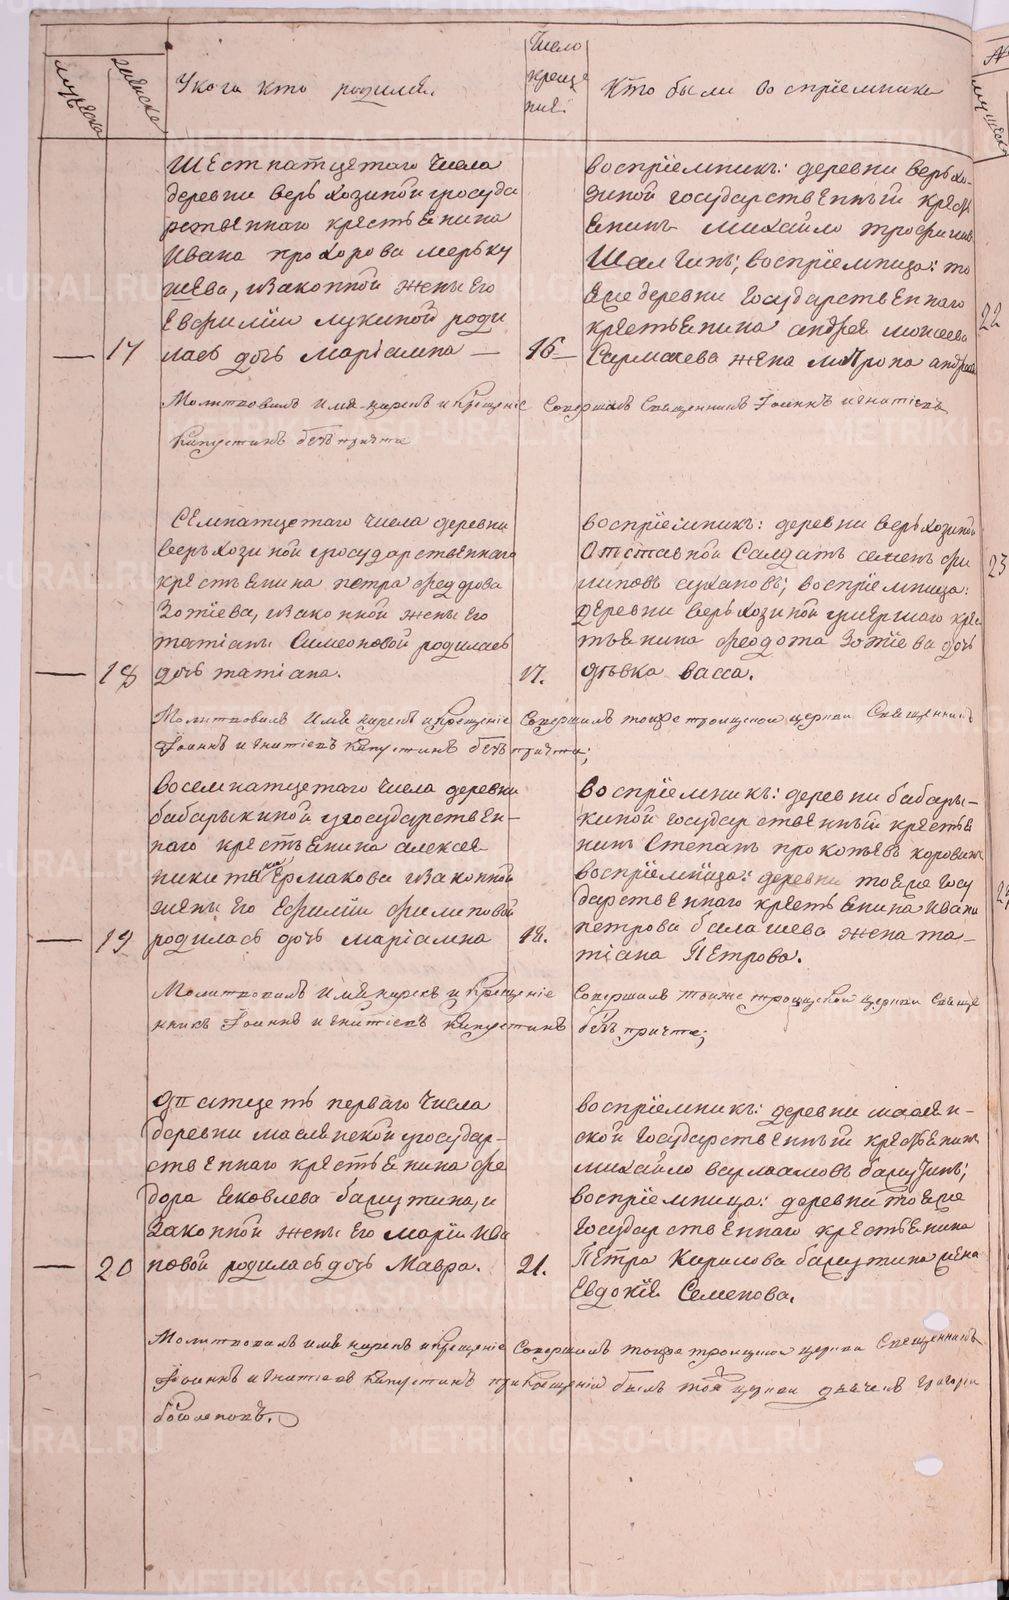 мужеска
женска
У кого кто родился.
Число
креще
ния
Кто были восприемники
Шестнатцетаго числа
деревни Верьхозиной государ
рственнаго крестьенина
Ивана Прохорова Мерьку
шева, и законной жены его
Евфиміи Лукиной роди
— 17 лась дочь Маріамна — 16 —
восприемникъ: деревни Верьхо-
зиной государственный крест
енинъ Михайло Трофимовъ
Шалгинъ; восприемница: то
еже деревни государственнаго
крестьенина Андрея Моисеева
жена Матрона Андреева
Молитвовалъ имя нарекъ и крещеніе совершалъ Священникъ Іоаннъ Игнатіевъ
Капустинъ безъ причта
Семнатцетаго числа деревни
Верьхозиной государственнаго
крестьенина Петра Федорова
Зотіева, и законной жены его
Татіаны Симеоновой родилась
— 18 дочь Татіана. 17.
восприемникъ: деревни Верьхозиной
отставной салдатъ Семенъ Фи
липовъ Сухановъ; восприемница:
деревни Верьхозиной крес
тьенина Феодота Зотіева дочь
дѣвка Васса.
Молитвовалъ имя нарекъ и крещеніе совершалъ тойже троицкой церкви Священникъ
Іоаннъ Игнатіевъ Капустинъ безъ причта;
Восемнатцетаго числа деревни
Бабарыкиной государствен-
наго крестьенина Алексея
Никитина Ермакова и законной
жены его Ефиміи Филиповой
— 19 родилась дочь Маріамна 18.
Восприемникъ: деревни Бабары-
киной государственный крестье
нинъ Степанъ Прокопьевъ Коровинъ
восприемница: деревни тоеже госу
дарственнаго крестьенина Ивана
Петрова Балашева жена Та-
тіана Петрова.
Молитвовалъ имя нарекъ и крещеніе совершалъ тоиже троицкой церкви Свяще
нникъ Іоаннъ Игнатіевъ Капустинъ безъ причта;
Дватцеть перваго числа
деревни Маслянской государ-
ственнаго крестьенина Фе
дора Яковлева Балутина, и
законной жены его Маріи Ива
— 20 новой родилась дочь Мавра. 21.
восприемникъ: деревни Маслян-
ской государственный крестьенинъ
Михайло Варлаамовъ Балутинъ;
восприемница: деревни тоеже
государственнаго крестьенина
Петра Кирилова Балутина жена
Евдокія Семенова.
Молитвовалъ имя нарекъ и крещеніе совершалъ тоиже троицкой церкви Священникъ
Іоаннъ Игнатіевъ Капустинъ при крещеніи былъ тоя церкви дьячекъ Григорій
Боголеповъ.
22
23